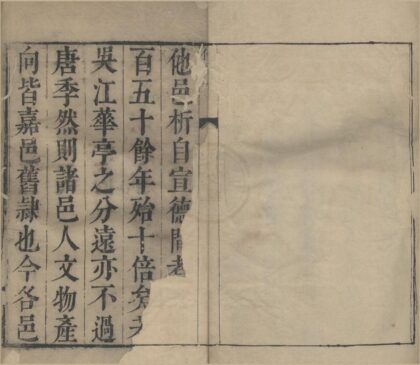 他邑析自宣德間者
百五十餘年始十倍矣
吳江華亭之分遠亦不過
唐季然則諸邑人文物產
向皆嘉邑舊隷也今各邑